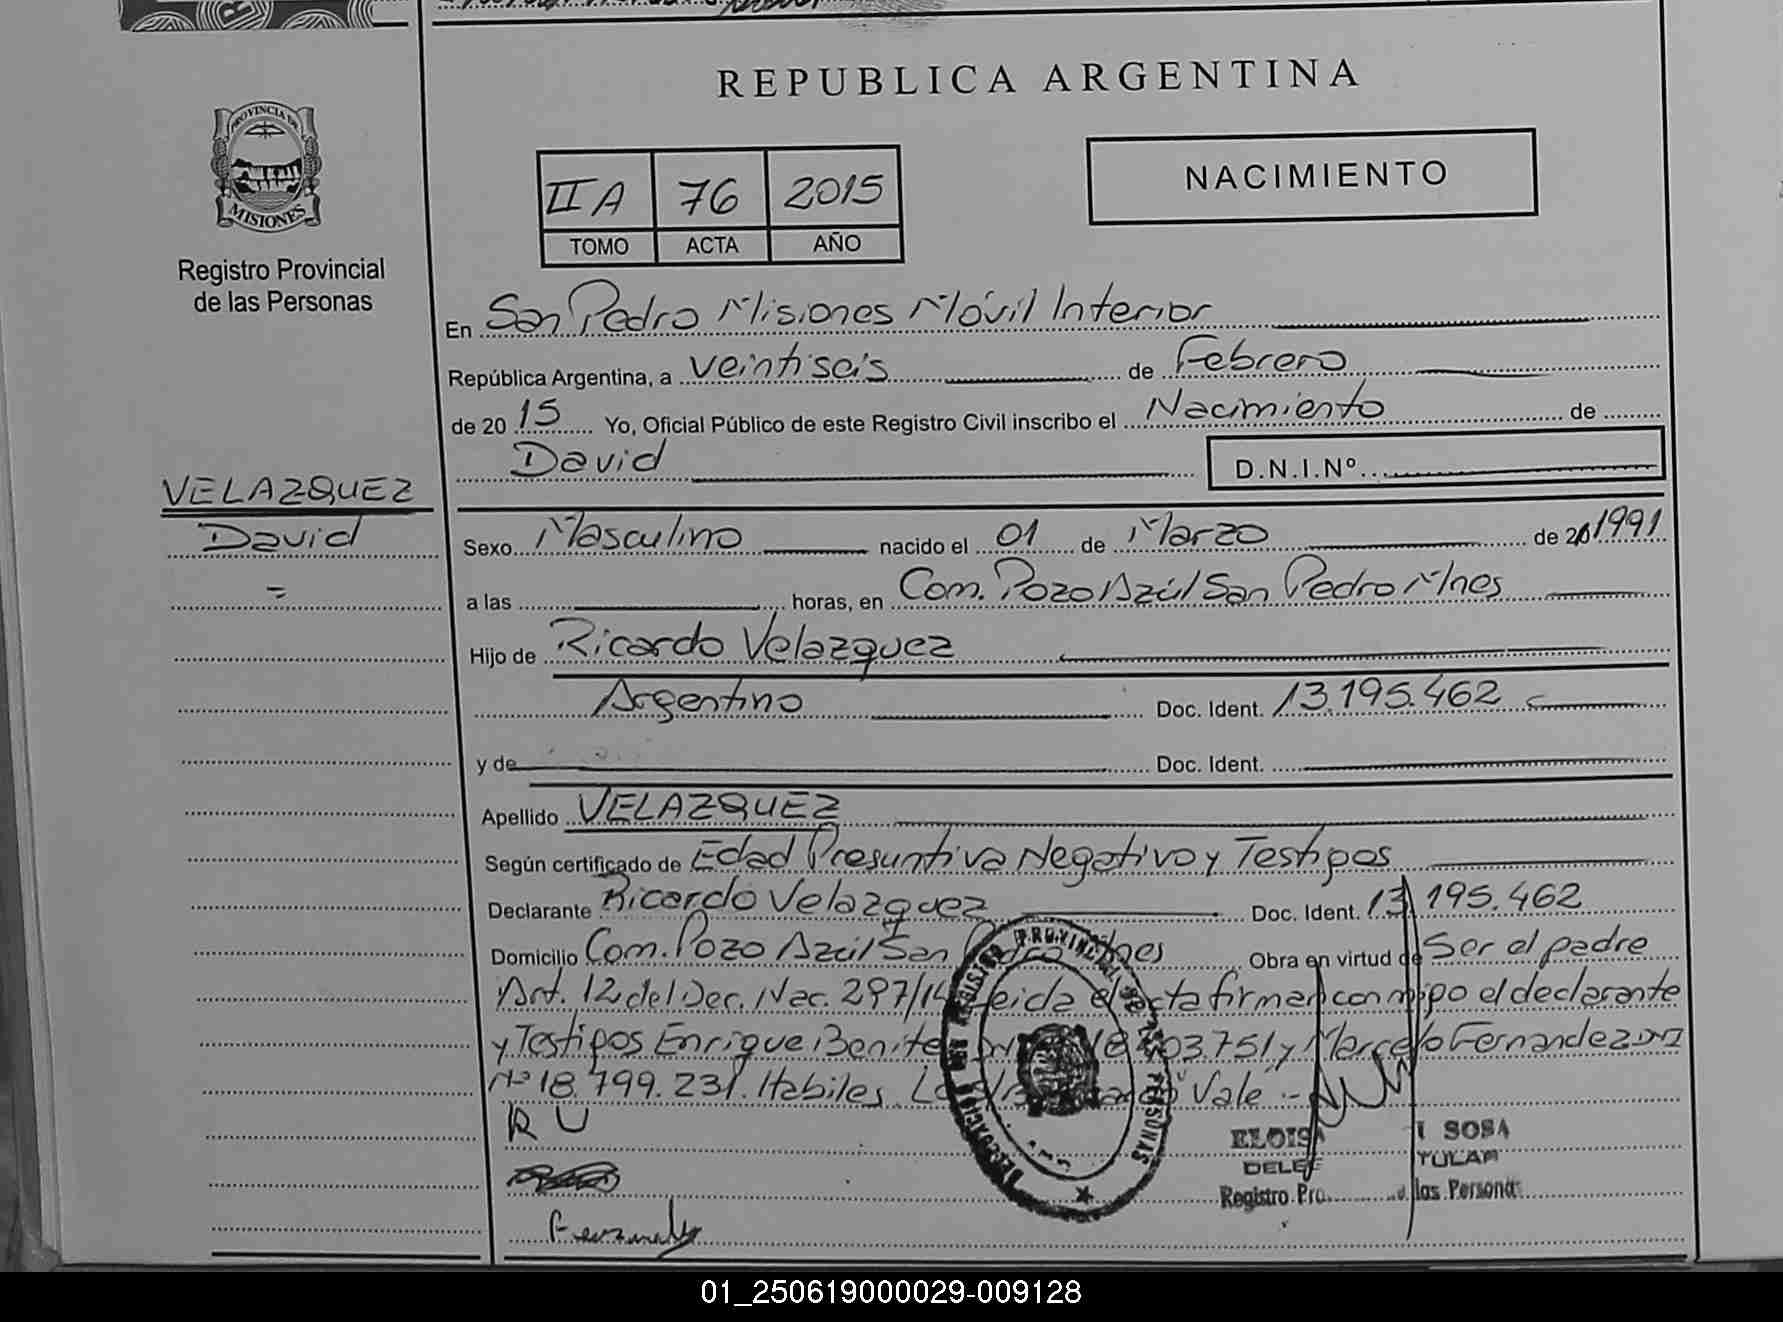 REPUBLICA ARGENTINA
PROVINCIA DE
MISIONES
Registro Provincial
de las Personas
II A 76 2015
TOMO ACTA AÑO
NACIMIENTO
En San Pedro Misiones Móvil Interior
República Argentina, a veintiseis de Febrero
de 20 15 Yo, Oficial Público de este Registro Civil inscribo el Nacimiento de
David D.N.I.Nº
VELAZQUEZ
David
=
Sexo Masculino nacido el 01 de Marzo de 1991
a las horas, en Com. Pozo Azúl San Pedro Mnes
Hijo de Ricardo Velazquez
Argentino Doc. Ident. 13.195.462
y de Doc. Ident.
Apellido VELAZQUEZ
Según certificado de Edad Presuntiva Negativo y Testigos
Declarante Ricardo Velazquez Doc. Ident. 13.195.462
Domicilio Com. Pozo Azúl San Obra en virtud de Ser el padre
Art. 12 del Dec. Nac. 297/14 el acta firman conmigo el declarante
y Testigos Enrique Benitez y Marcelo Fernandez DNI
Nº 18.799.231. Habiles. Vale :-
R U
ELOISA SOSA
DELE TULAR
Registro Pro las Personas
Fernandez
REGISTRO PROVINCIAL DE LAS PERSONAS
01_250619000029-009128